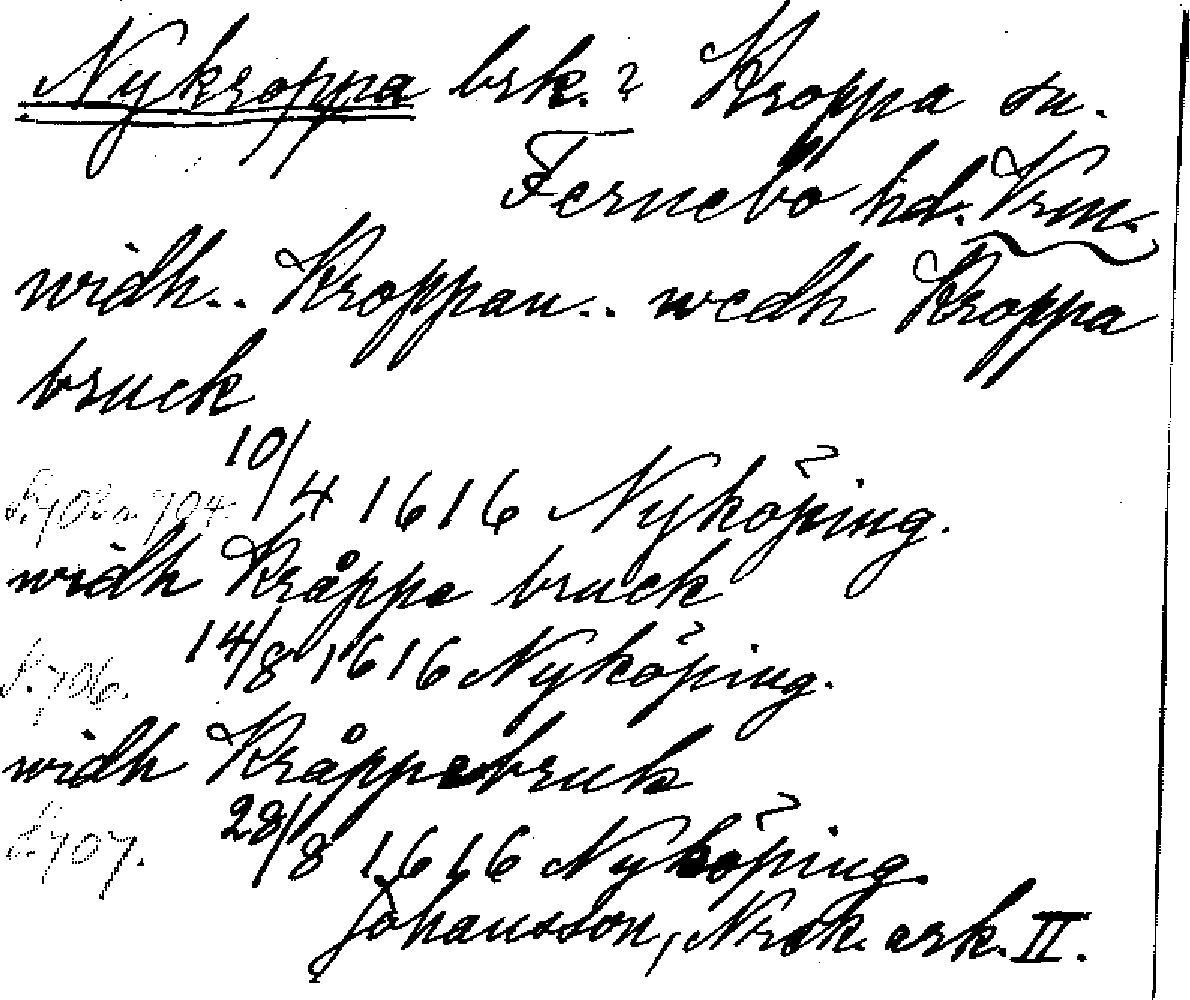 Nykroppa brk.? Kroppa sn.
Fernebo hd. Vrm.
widh.. Kroppan.. wedh Kroppa
bruck
S. 703 o. 704. 10/4 1616 Nyköping.
widh Kråppe bruck
S. 706. 14/8 1616 Nyköping.
widh Kråppebruk
S. 707. 28/8 1616 Nyköping.
Johansson, Norsk. ark. II.